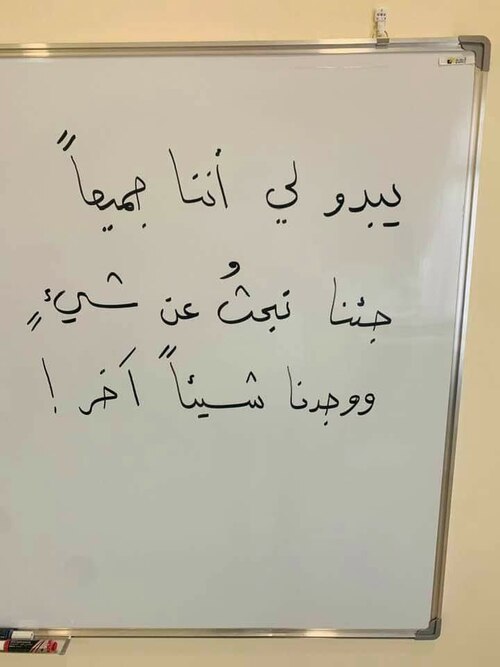 يبدو لي أننا جميعاً
جئنا نبحثُ عن شيءٍ
ووجدنا شيئاً آخر !